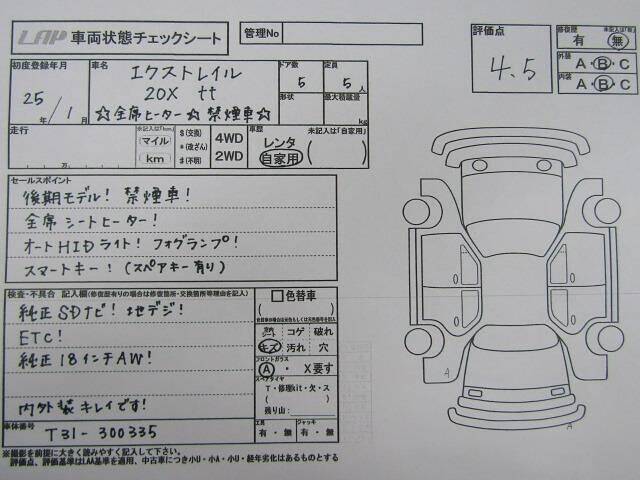 LAP 車両状態チェックシート
管理No
評価点
4.5
修復歴
未記入は「無」
有 無
外装
A・B・C
内装
A・B・C
初度登録年月
25年/1月
車名
エクストレイル
20X tt
☆全席ヒーター☆ 禁煙車☆
ドア数
5
定員
5人
形状
最大積載量
kg
走行
万
未記入は「km」
マイル
km
$(交換)
*(改ざん)
#(不明)
4WD
2WD
車歴
未記入は「自家用」
レンタ
自家用
( )
セールスポイント
後期モデル! 禁煙車!
全席シートヒーター!
オートHIDライト! フォグランプ!
スマートキー! (スペアキー有り)
検査・不具合 記入欄(修復歴有りの場合は修復箇所・交換箇所等理由を記入)
純正SDナビ! 地デジ!
ETC!
純正18インチAW!
内外装キレイです!
色替車
( )
室内 シート
コゲ 破れ
キズ 汚れ 穴
フロントガラス
A・ X要す
スペアタイヤ
T・修理kit・欠・ス
( )
残り山:
車体番号
T31-300335
工具
有・無
ジャッキ
有・無
A
A
※撮影を前提に大きく読みやすく記入して下さい。
評価点、評価基準はLAA基準を適用、中古車につき小U・小A・小U・経年劣化はあるものとする